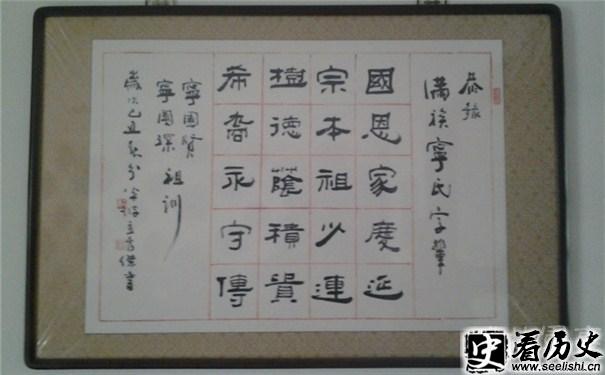 恭録
滿族寧氏字輩
國恩家慶延
宗本祖以連
樹德蔭積貴
希裔永守傳
寧國賢
寧國琛
祖訓
歲次己丑
書
史
看历史
www.seelishi.cn